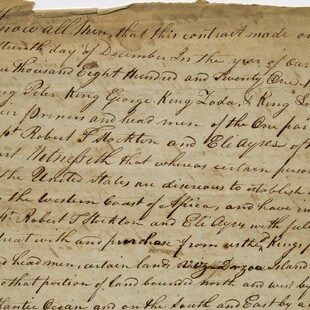 Know all Men, that this contract made on
fteenth day of December In the year of our
ne Thousand Eight Hundred and Twenty One,
ng Peter King George King Zoda, & King
eir princes and head men of the One par
pt Robert F Stockton and Eli Ayres of t
art Witnesseth that whereas certain person
the United States are disireous to establish
n the western Coast of Africa, and have in
t. Robert F Stockton and Eli Ayres with full
treat with and purchase from us the sd Kings
nd head men, certain lands viz Dozoa Island
so that portion of land bounded north and west by
lantic Ocean and on the South and East by a